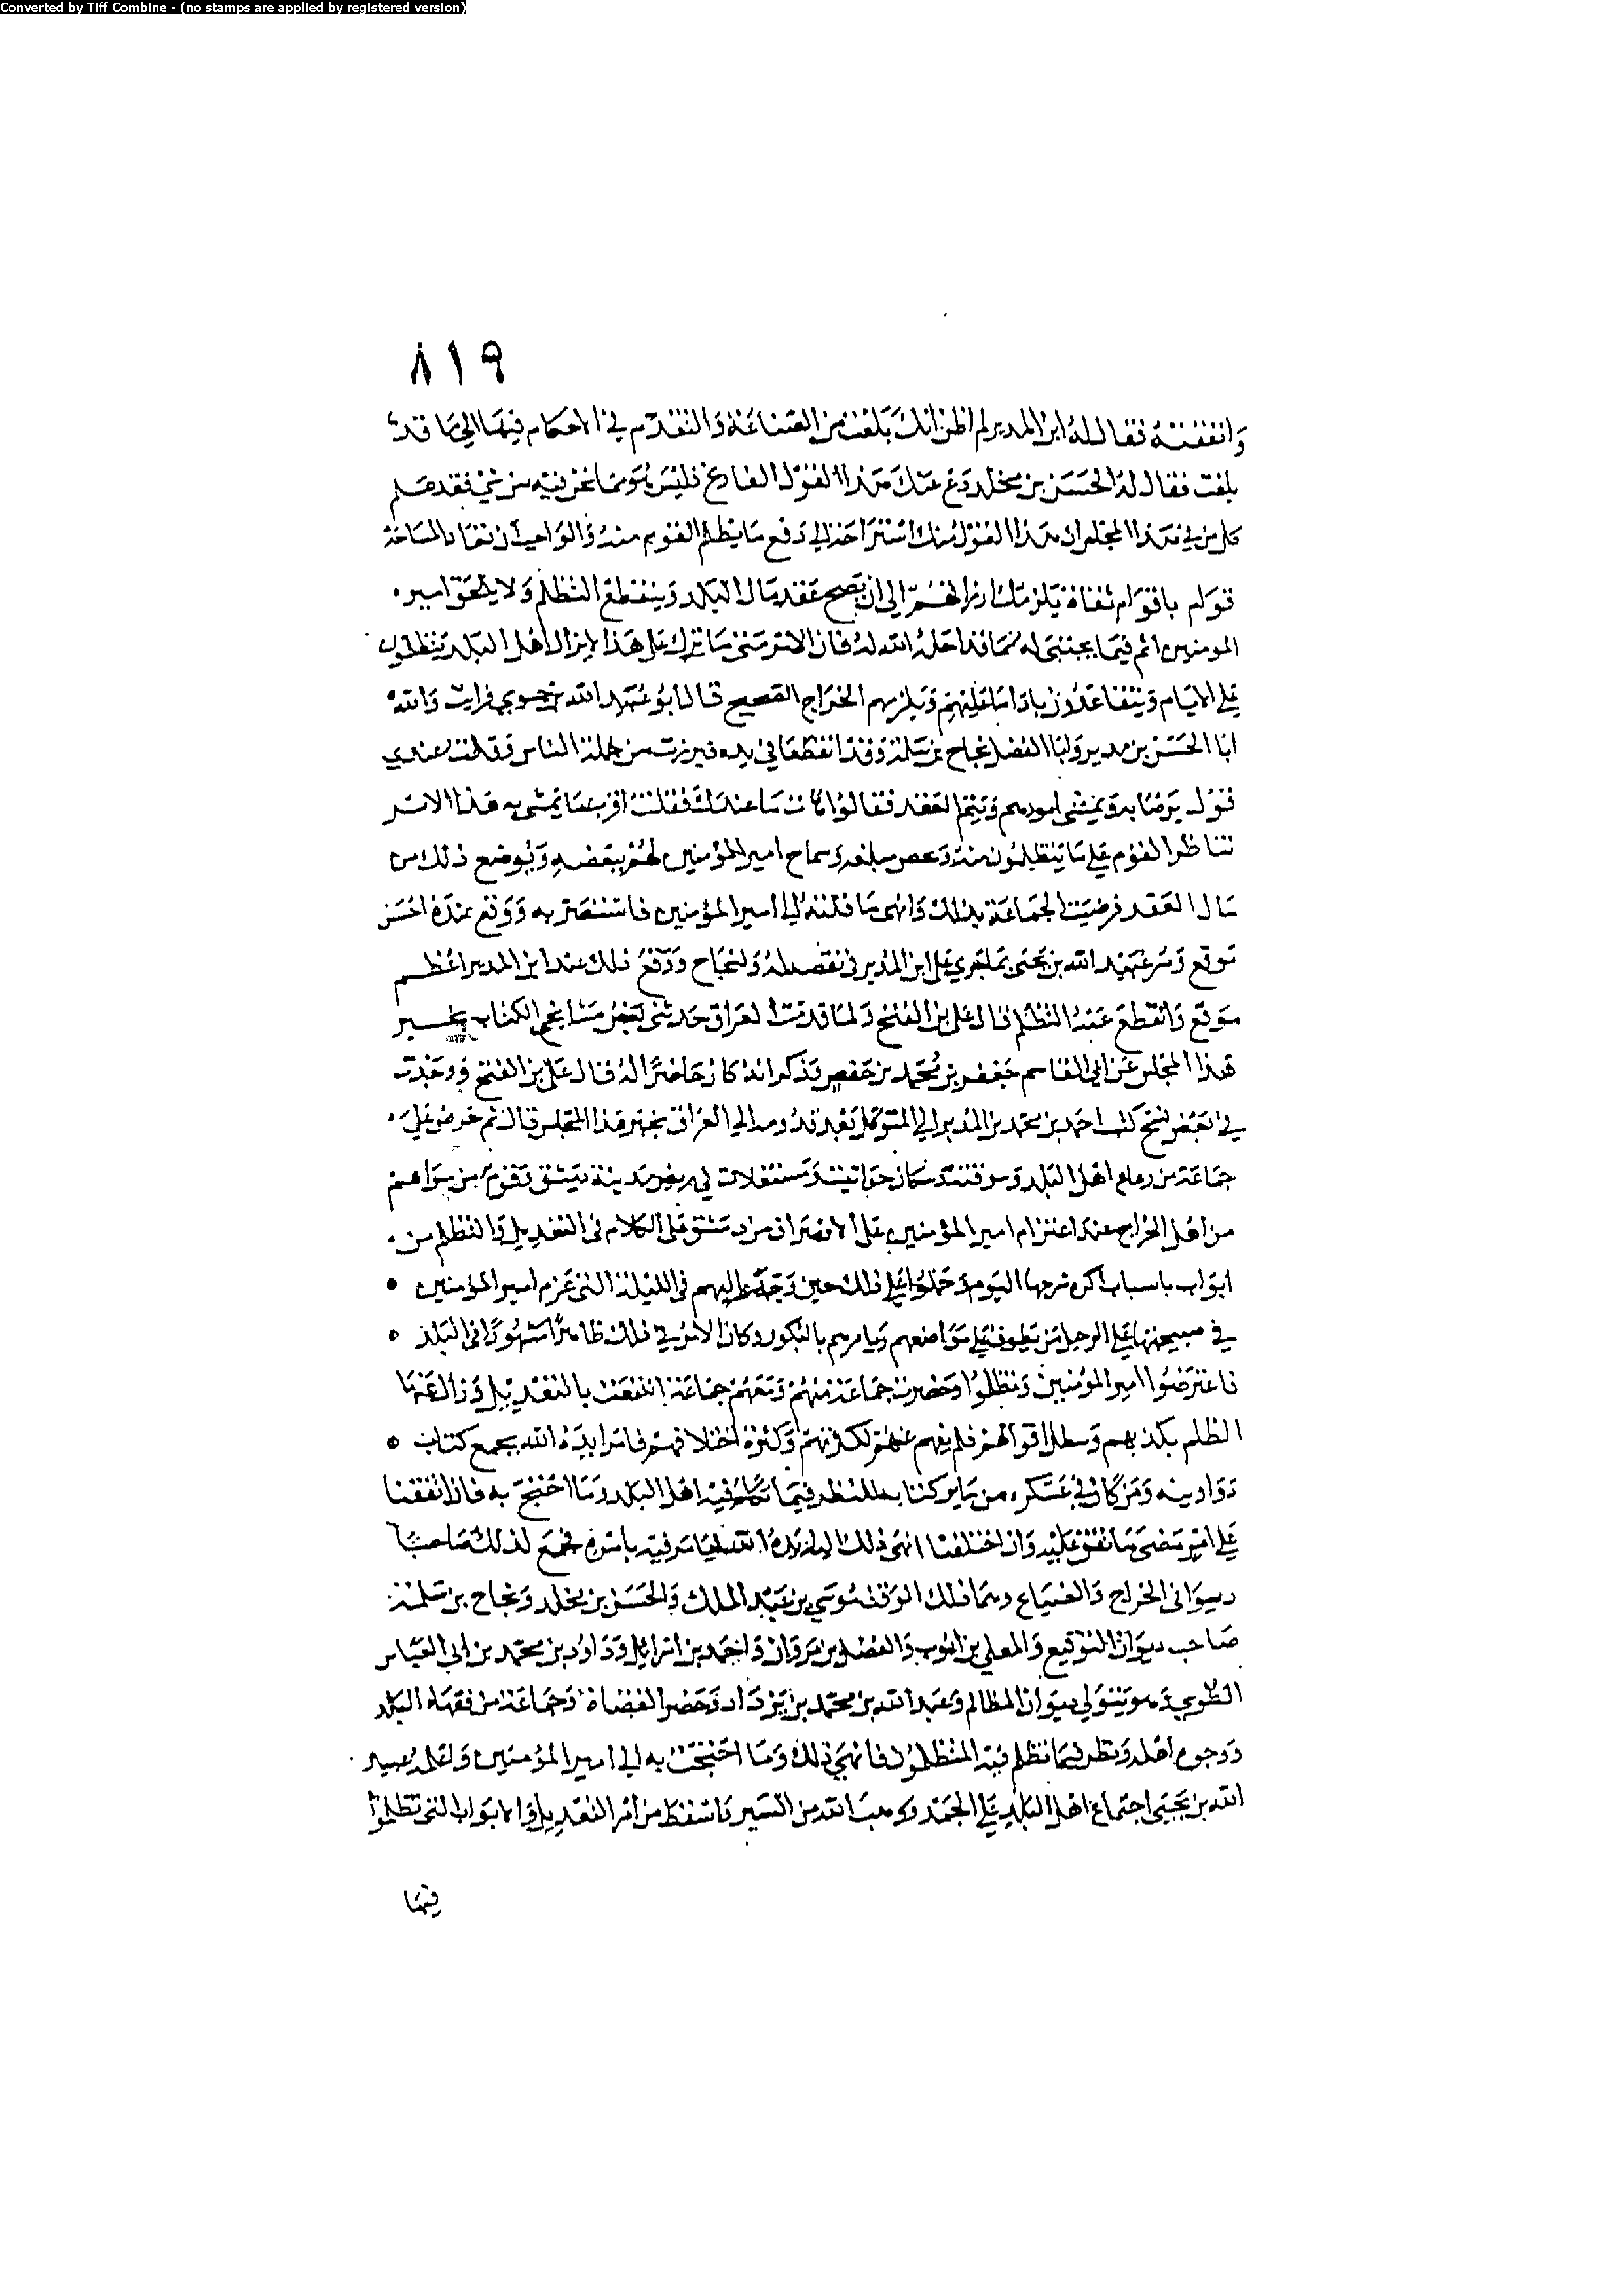 Converted by Tiff Combine - (no stamps are applied by registered version)
٨١٩
وانفقته فقال له ابن المدبر لم اظن انك بلغت من الصناعة والتقدم في الاحكام فيها الي ما قد
بلغت فقال له الحسن بن مخلد دع عنك هذا القول الفارغ فليس هو مما نحن فيه من شي فقد علم
كل من في هذا المجلس ان هذا القول منك استراحة الي دفع ما يتظلم القوم منه والواجب ان تعاد المساحة
باقوام ثقاة يلزمك الي ان يصح عقد مال البلد وينقطع التظلم ولا يلحق امير
المومنين اثم فيما يجتبى له مما قد احل الله له فان الامر متى ما ترك على هذا لم يزل اهل البلد يتظلمون
على الايام ويتقاعدون باداء ما عليهم ويلزمهم الخراج الصحيح قال ابو عبد الله فرايت والله
ابا الحسن بن مدبر وابا الفضل نجاح بن سلمة وقد انقطعا في يده فبرزت من جملة الناس وقلت عندي
قول يرضا به ويمشي امورهم ويتم العقد فقالوا هات ما عندك فقلت اقرب ما يمشى به هذا الامر
تناظر القوم على ما يتظلمون منه مبلغه وسماح امير المؤمنين لهم ببعضه ويوضع ذلك من
مال العقد فرضيت الجماعة بذلك وانهى ما قلته الى امير المؤمنين به ووقع عنده احسن
موقع وسر عبيد الله بن يحيى بما جرى على ابن المدبر ولنجاح ووقع ذلك عند ابن المدبر اعظم
موقع وانقطع عنه التظلم قال علي بن الفتح ولما قدمت العراق حدثني بعض مشايخ الكتاب بخبر
هذا المجلس عن ابي القاسم جعفر بن محمد بن حفص وذكر انه كان حاضرا له قال علي بن الفتح ووجدت
في بعض نسخ كتب احمد بن محمد بن المدبر الي المتوكل بعد قدومه الي العراق بخبر هذا المجلس قال ثم
جماعة من اهل البلد وسوقته سكان حوانيت ومستغلات في ربض مدينة دمشق وقوم من سواهم
من اهل الخراج عند اعتزام امير المؤمنين على الانصراف من دمشق على الكلام في التعديل والتظلم من
ابواب باسباب اكره شرحها اليوم وحملوا على ذلك حين وجه اليهم في الليلة التي عزم امير المؤمنين
في صبيحتها على الرحيل من يطوف على مواضعهم ويامرهم بالبكور وكان الامر في ذلك ظاهرا مشهورا في البلد
فاعترضوا امير المؤمنين وتظلموا وحضرت جماعة منهم ومعهم جماعة انتفعت بالتعديل وزال عنها
الظلم يكذبهم ويبطل اقوالهم فلم يفهم عنهم لكثرتهم وكثرة اختلافهم فامر ايده الله بجمع كتاب
دواوينه ومن كان في عسكره من كتابه للنظر فيما تكلم فيه اهل البلد وما احتج به فان اتفقنا
على امر مضى ما نتفق عليه وان اختلفنا انهى ذلك اليه ايده الله ليامر فيه بامره فجمع لذلك صاحبا
ديواني الخراج والضياع وهما في ذلك الوقت موسى بن عبد الملك والحسن بن مخلد ونجاح بن سلمة
صاحب ديوان التوقيع والمعلى بن ايوب والفضل بن مروان واحمد بن اسرائيل وداود بن محمد بن ابي العباس
الطوسي وهو يتولى ديوان المظالم وعبد الله بن محمد بن يزداد وحضر القضاة وجماعة من فقهاء البلد
ووجوه اهله ونظر فيما تظلم فيه المتظلمون فانهي ذلك وما احتججت به الي امير المؤمنين عبيد
الله بن يحيى اجتماع اهل البلد على فاسقط من امر التعديل والابواب التي تظلموا
فيها